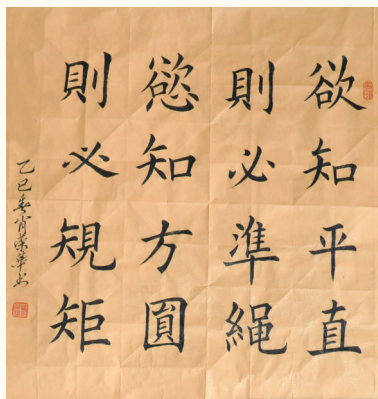 欲知平直
則必準繩
慾知方圓
則必規矩
乙巳春肖榮華书